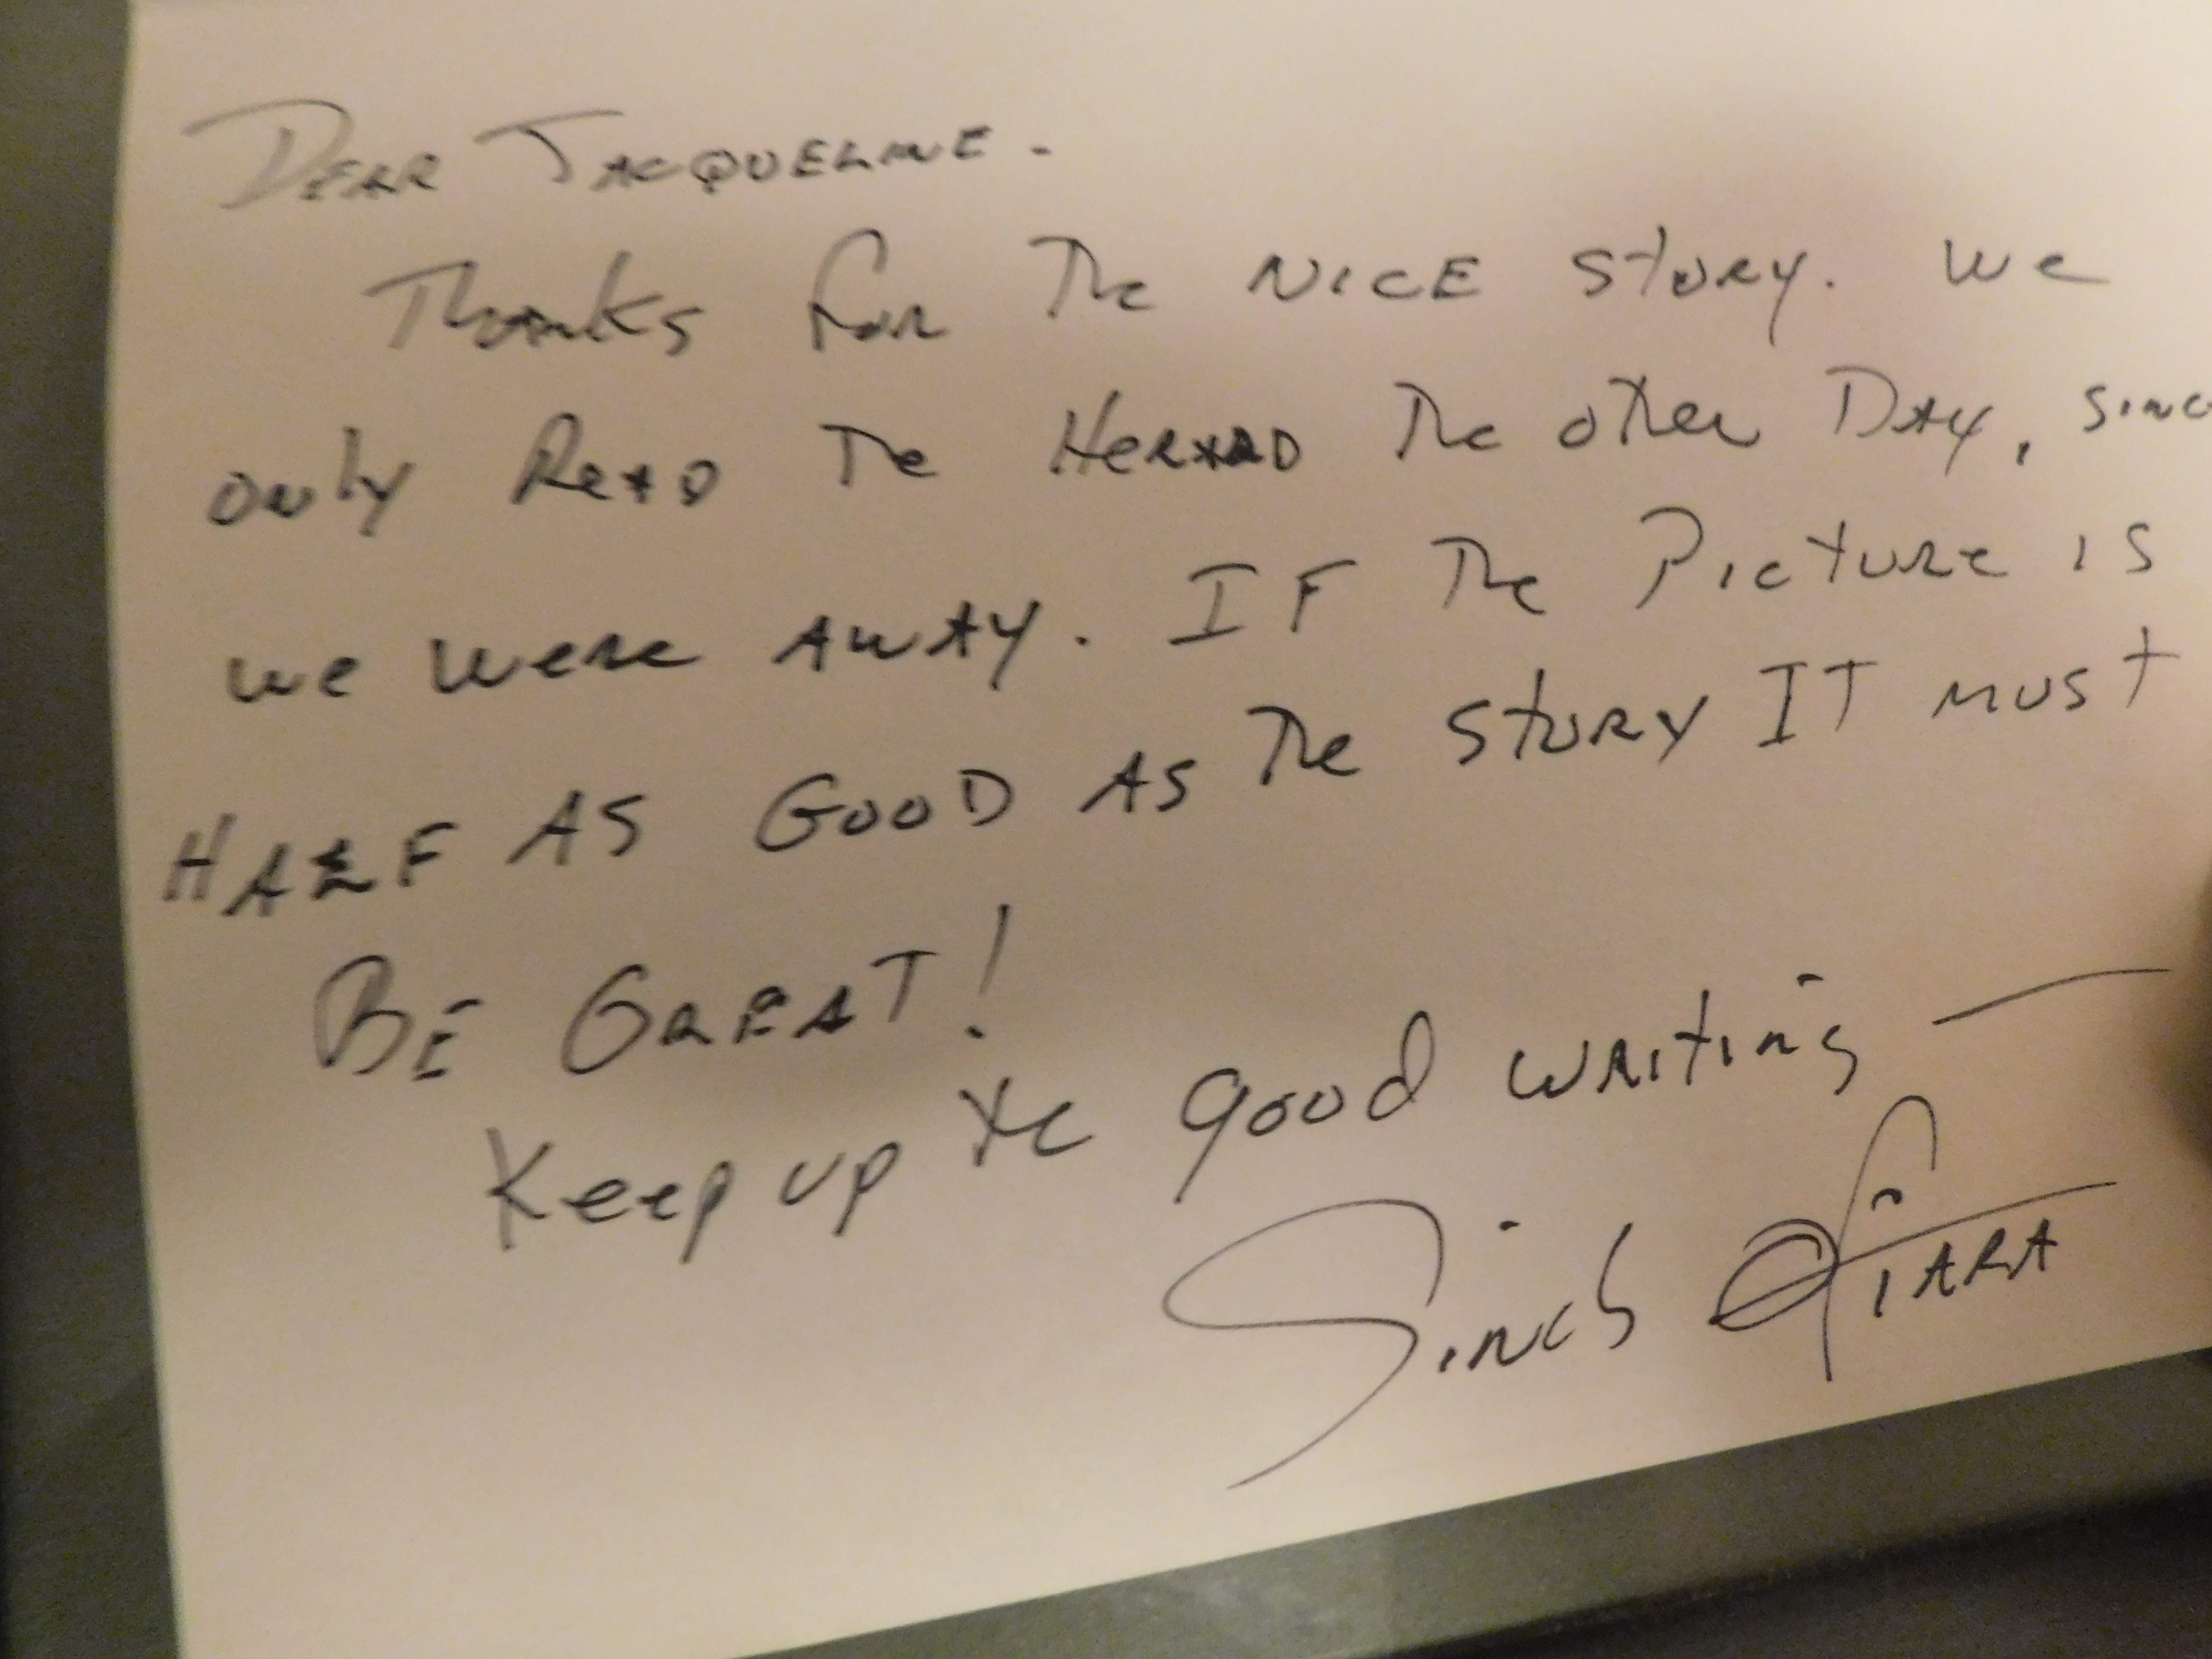 DEAR JACQUELINE.
Thanks for The NICE Story. We
only Read The HERALD The other DAY, sinc
we were AWAY. IF The Picture is
HALF AS GOOD AS The STORY IT must
BE GREAT!
Keep up the good writing —
TARA